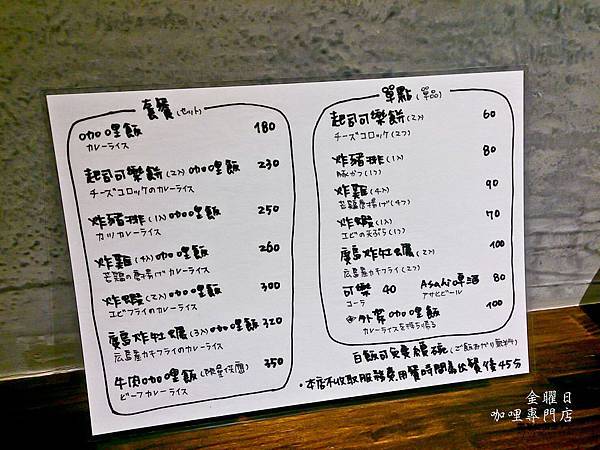 套餐(セット)
咖哩飯 180
カレーライス
起司可樂餅(2入)咖哩飯 230
チーズコロッケのカレーライス
炸豬排(1入)咖哩飯 250
カツカレーライス
炸雞(4入)咖哩飯 260
若鶏の唐揚げカレーライス
炸蝦(2入)咖哩飯 300
エビフライのカレーライス
廣島炸牡蠣(3入)咖哩飯 320
広島産カキフライのカレーライス
牛肉咖哩飯(限量供應) 350
ビーフカレーライス
單點(単品)
起司可樂餅(2入) 60
チーズコロッケ(2つ)
炸豬排(1入) 80
豚かつ(1つ)
炸雞(4入) 90
若鶏唐揚げ(4つ)
炸蝦(1入) 70
エビの天ぷら(1つ)
廣島炸牡蠣(2入) 100
広島産カキフライ(2つ)
可樂 40 Asahi啤酒 80
コーラ アサヒビール
外帶咖哩飯 100
カレーライスを持ち帰る
白飯可免費續碗(ご飯おかわり無料)
・本店不收取服務費用餐時間為供餐後45分
金曜日
咖哩專門店